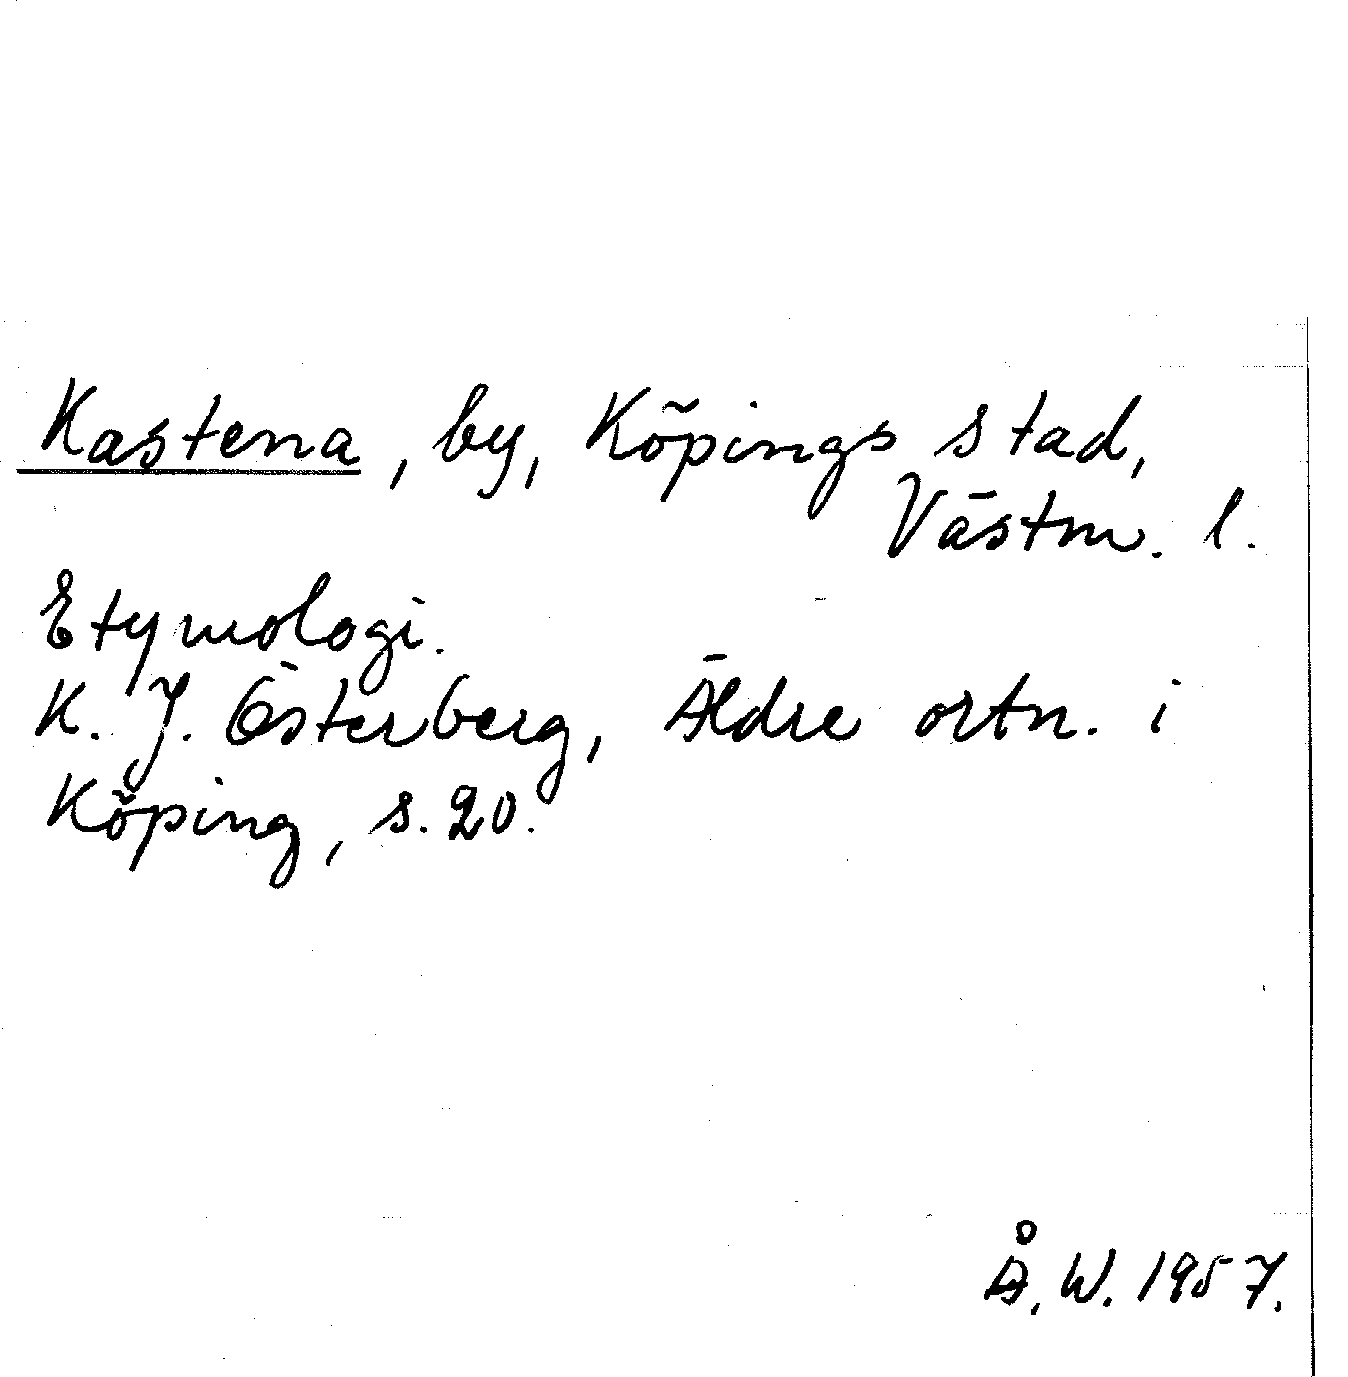 Kastena, by, Köpings stad,
Västm. l.
Etymologi.
K. J. Österberg, Äldre ortn. i
Köping, s. 20.
Å. W. 1957.